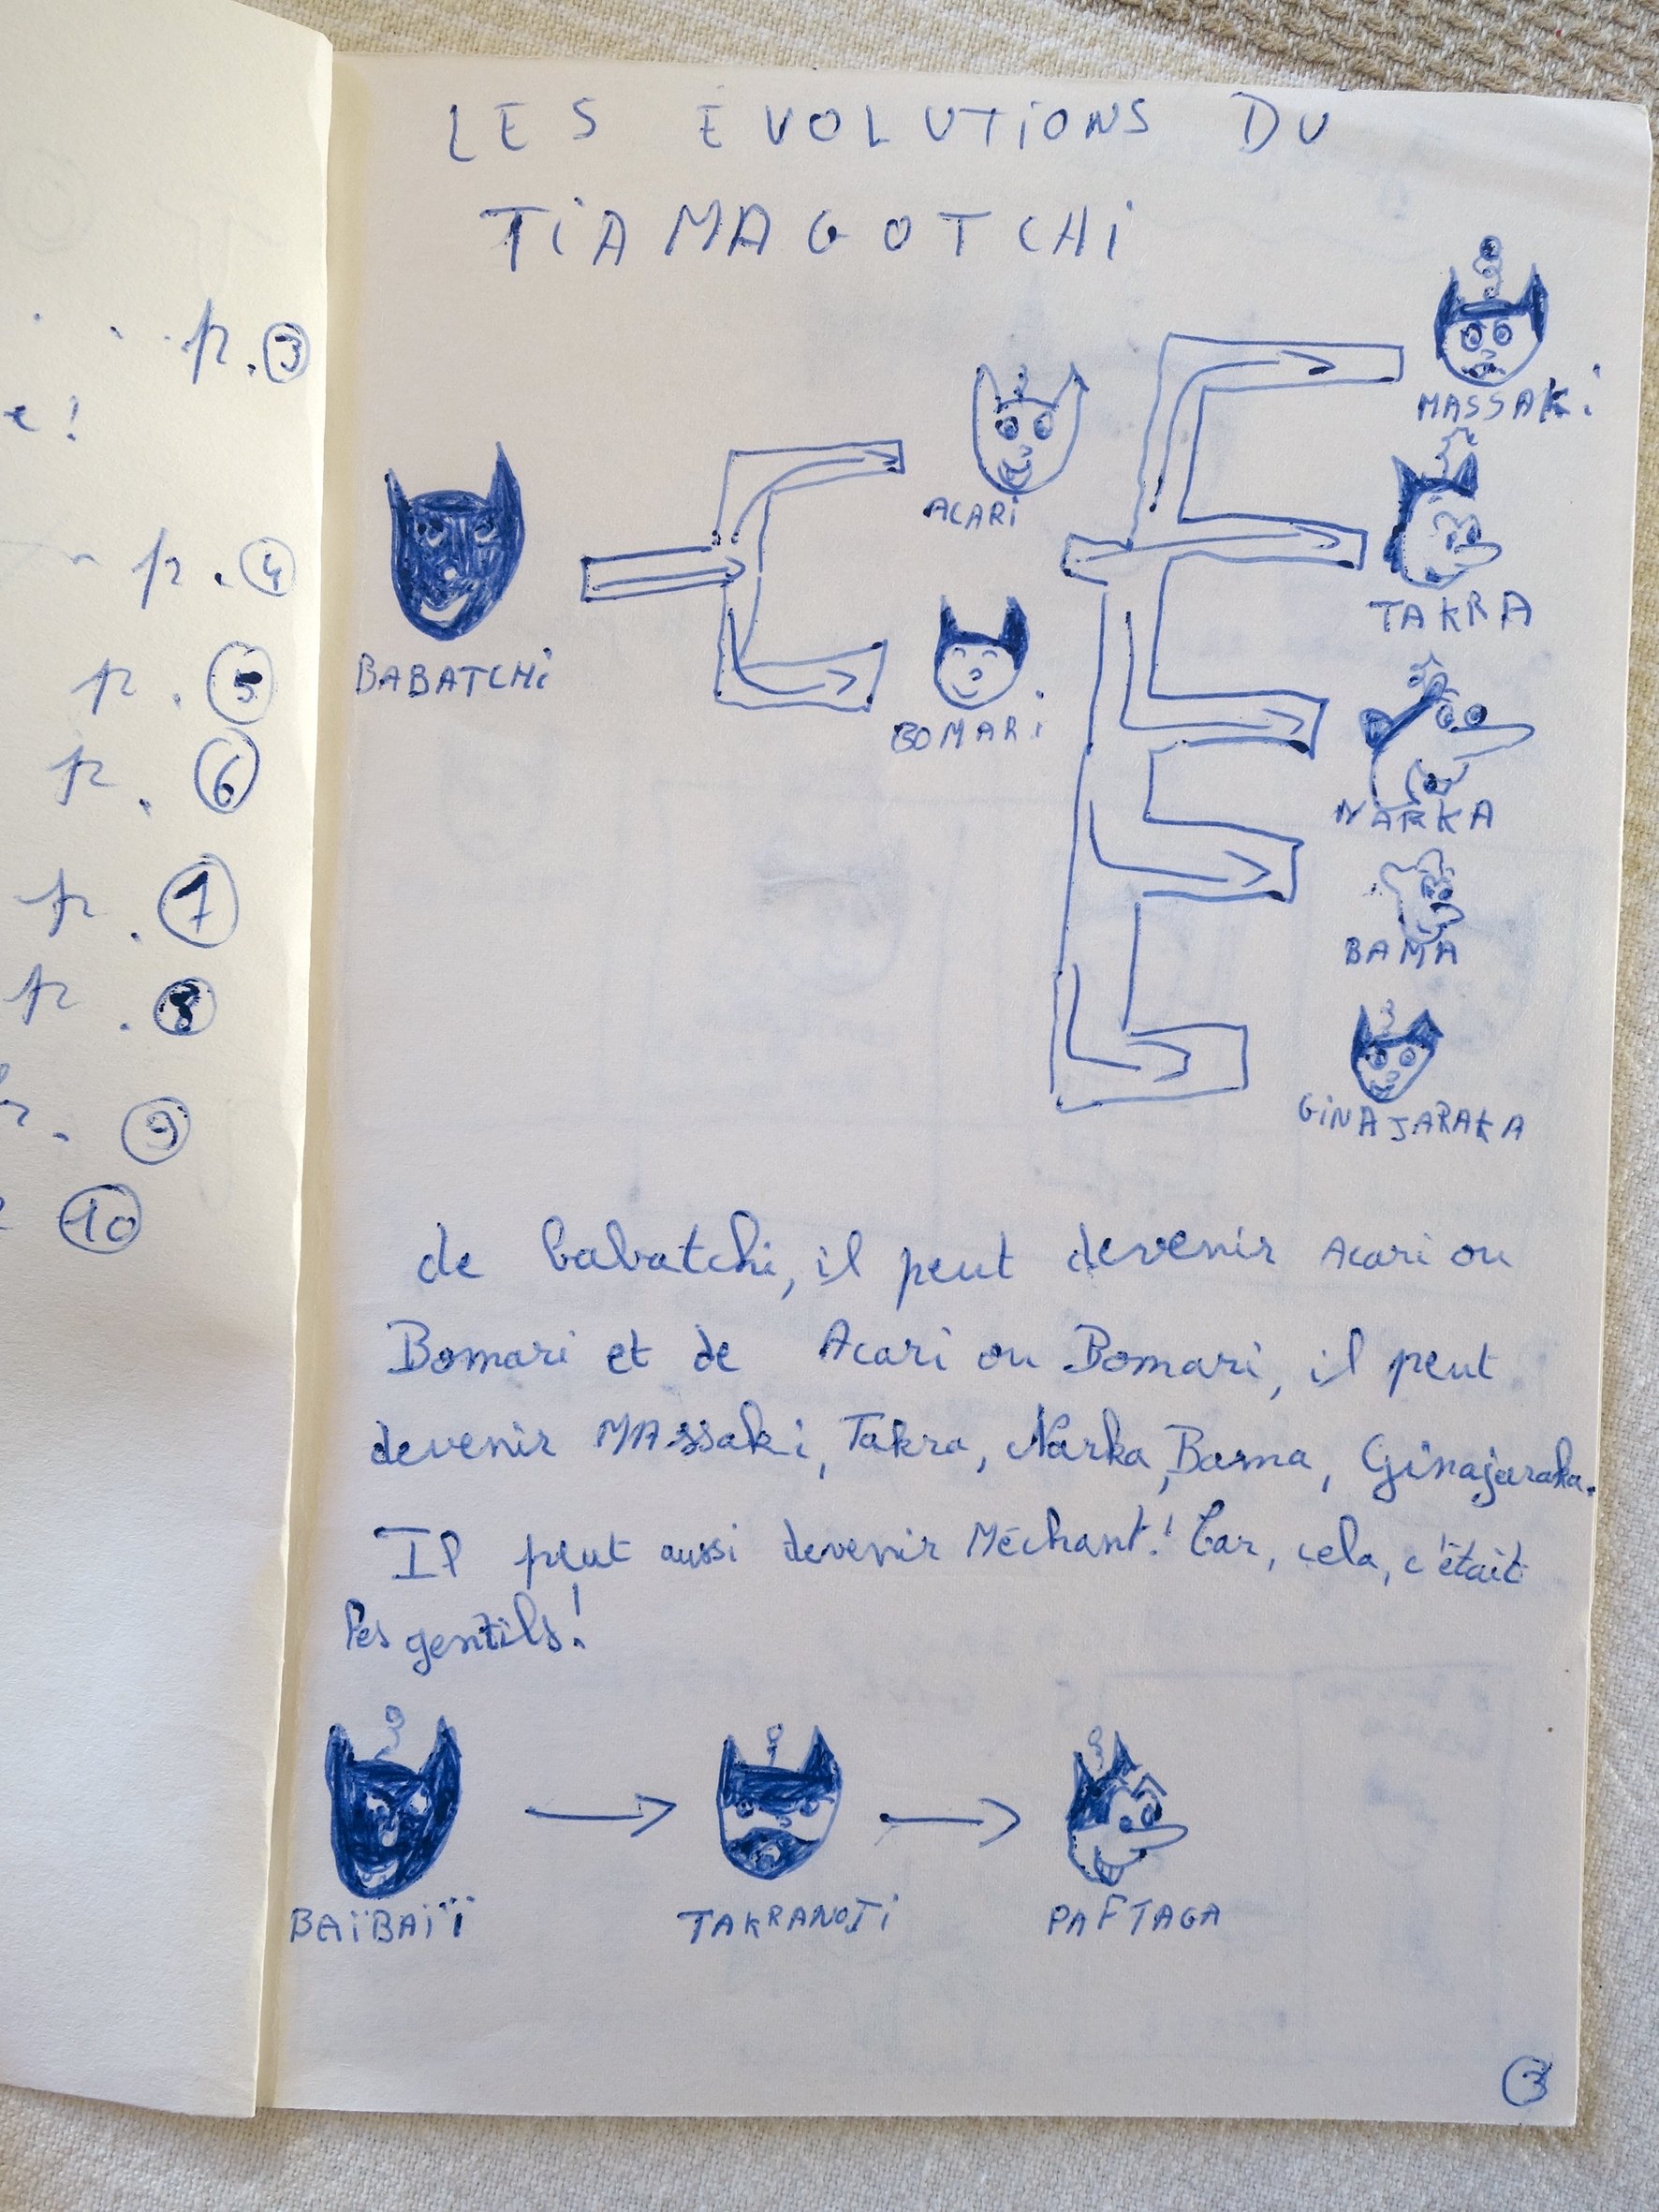 p. 3
e !
p. 4
p. 5
p. 6
p. 7
p. 8
. 9
10
LES EVOLUTiONS DU
TiAMAGOTCHi
MASSAKi
ACARi
TAKRA
BABATCHi
BOMARi
NARKA
BAMA
GiNAJARAKA
de babatchi, il peut devenir Acari ou
Bomari et de Acari ou Bomari, il peut
devenir MAssaki, Takra, Narka, Bama, Ginajaraka.
Il peut aussi devenir Méchant! Car, cela, c'était
les gentils!
BAïBAïï
TAKRANOJi
PAFTAGA
3